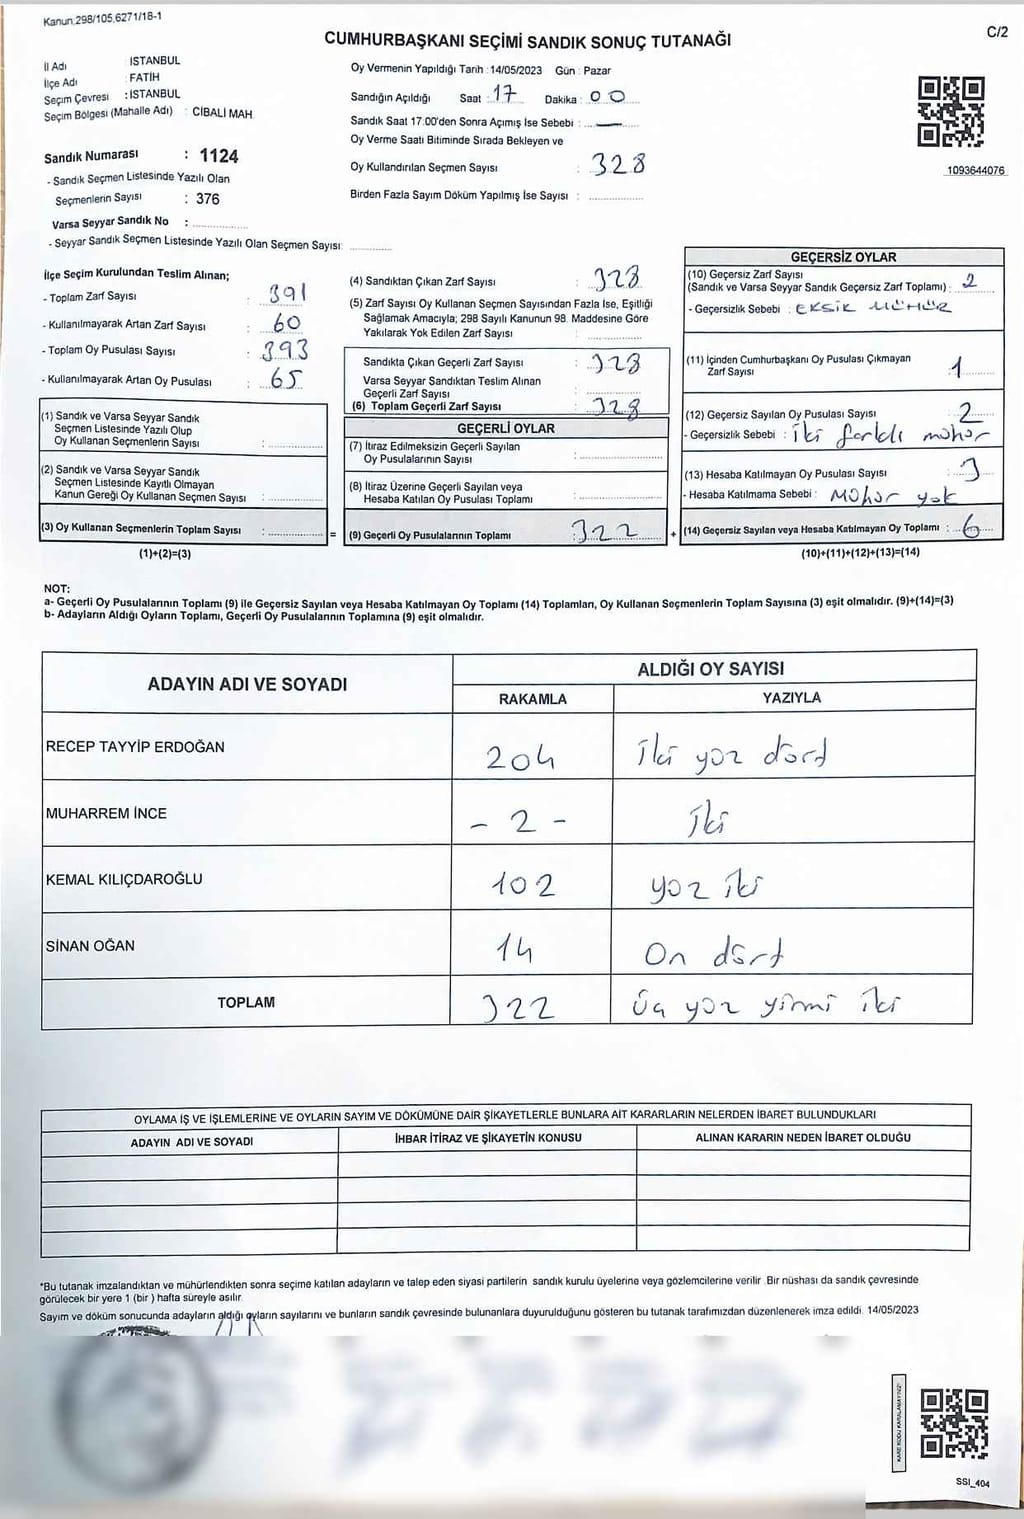 Kanun.298/105,6271/18-1
C/2
CUMHURBAŞKANI SEÇİMİ SANDIK SONUÇ TUTANAĞI
İl Adı : İSTANBUL
İlçe Adı : FATİH
Seçim Çevresi : İSTANBUL
Seçim Bölgesi (Mahalle Adı) : CİBALİ MAH.
Sandık Numarası : 1124
- Sandık Seçmen Listesinde Yazılı Olan
Seçmenlerin Sayısı : 376
Varsa Seyyar Sandık No :
- Seyyar Sandık Seçmen Listesinde Yazılı Olan Seçmen Sayısı:
Oy Vermenin Yapıldığı Tarih : 14/05/2023 Gün : Pazar
Sandığın Açıldığı Saat : 17 Dakika : 00
Sandık Saat 17.00'den Sonra Açımış İse Sebebi : —
Oy Verme Saati Bitiminde Sırada Bekleyen ve
Oy Kullandırılan Seçmen Sayısı : 328
Birden Fazla Sayım Döküm Yapılmış İse Sayısı :
1093644076
İlçe Seçim Kurulundan Teslim Alınan;
- Toplam Zarf Sayısı : 391
- Kullanılmayarak Artan Zarf Sayısı : 60
- Toplam Oy Pusulası Sayısı : 393
- Kullanılmayarak Artan Oy Pusulası : 65
(1) Sandık ve Varsa Seyyar Sandık
Seçmen Listesinde Yazılı Olup
Oy Kullanan Seçmenlerin Sayısı :
(2) Sandık ve Varsa Seyyar Sandık
Seçmen Listesinde Kayıtlı Olmayan
Kanun Gereği Oy Kullanan Seçmen Sayısı :
(3) Oy Kullanan Seçmenlerin Toplam Sayısı : =
(1)+(2)=(3)
(4) Sandıktan Çıkan Zarf Sayısı : 328
(5) Zarf Sayısı Oy Kullanan Seçmen Sayısından Fazla İse, Eşitliği
Sağlamak Amacıyla; 298 Sayılı Kanunun 98. Maddesine Göre
Yakılarak Yok Edilen Zarf Sayısı :
Sandıkta Çıkan Geçerli Zarf Sayısı : 328
Varsa Seyyar Sandıktan Teslim Alınan
Geçerli Zarf Sayısı :
(6) Toplam Geçerli Zarf Sayısı : 328
GEÇERLİ OYLAR
(7) İtiraz Edilmeksizin Geçerli Sayılan
Oy Pusulalarının Sayısı :
(8) İtiraz Üzerine Geçerli Sayılan veya
Hesaba Katılan Oy Pusulası Toplamı :
(9) Geçerli Oy Pusulalarının Toplamı : 322 +
GEÇERSİZ OYLAR
(10) Geçersiz Zarf Sayısı
(Sandık ve Varsa Seyyar Sandık Geçersiz Zarf Toplamı) : 2
- Geçersizlik Sebebi : EKSİK MÜHÜR
(11) İçinden Cumhurbaşkanı Oy Pusulası Çıkmayan
Zarf Sayısı : 1
(12) Geçersiz Sayılan Oy Pusulası Sayısı : 2
- Geçersizlik Sebebi : İki farklı mühür
(13) Hesaba Katılmayan Oy Pusulası Sayısı : 3
- Hesaba Katılmama Sebebi : Mühür yok
(14) Geçersiz Sayılan veya Hesaba Katılmayan Oy Toplamı : 6
(10)+(11)+(12)+(13)=(14)
NOT:
a- Geçerli Oy Pusulalarının Toplamı (9) ile Geçersiz Sayılan veya Hesaba Katılmayan Oy Toplamı (14) Toplamları, Oy Kullanan Seçmenlerin Toplam Sayısına (3) eşit olmalıdır. (9)+(14)=(3)
b- Adayların Aldığı Oyların Toplamı, Geçerli Oy Pusulalarının Toplamına (9) eşit olmalıdır.
ADAYIN ADI VE SOYADI
ALDIĞI OY SAYISI
RAKAMLA YAZIYLA
RECEP TAYYİP ERDOĞAN 204 İki yüz dört
MUHARREM İNCE - 2 - İki
KEMAL KILIÇDAROĞLU 102 yüz iki
SİNAN OĞAN 14 On dört
TOPLAM 322 Üç yüz yirmi iki
OYLAMA İŞ VE İŞLEMLERİNE VE OYLARIN SAYIM VE DÖKÜMÜNE DAİR ŞİKAYETLERLE BUNLARA AİT KARARLARIN NELERDEN İBARET BULUNDUKLARI
ADAYIN ADI VE SOYADI İHBAR İTİRAZ VE ŞİKAYETİN KONUSU ALINAN KARARIN NEDEN İBARET OLDUĞU
*Bu tutanak imzalandıktan ve mühürlendikten sonra seçime katılan adayların ve talep eden siyasi partilerin sandık kurulu üyelerine veya gözlemcilerine verilir. Bir nüshası da sandık çevresinde
görülecek bir yere 1 (bir) hafta süreyle asılır.
Sayım ve döküm sonucunda adayların aldığı oyların sayılarını ve bunların sandık çevresinde bulunanlara duyurulduğunu gösteren bu tutanak tarafımızdan düzenlenerek imza edildi. 14/05/2023
KARE KODU KARALAMAYINIZ!
SSI_404